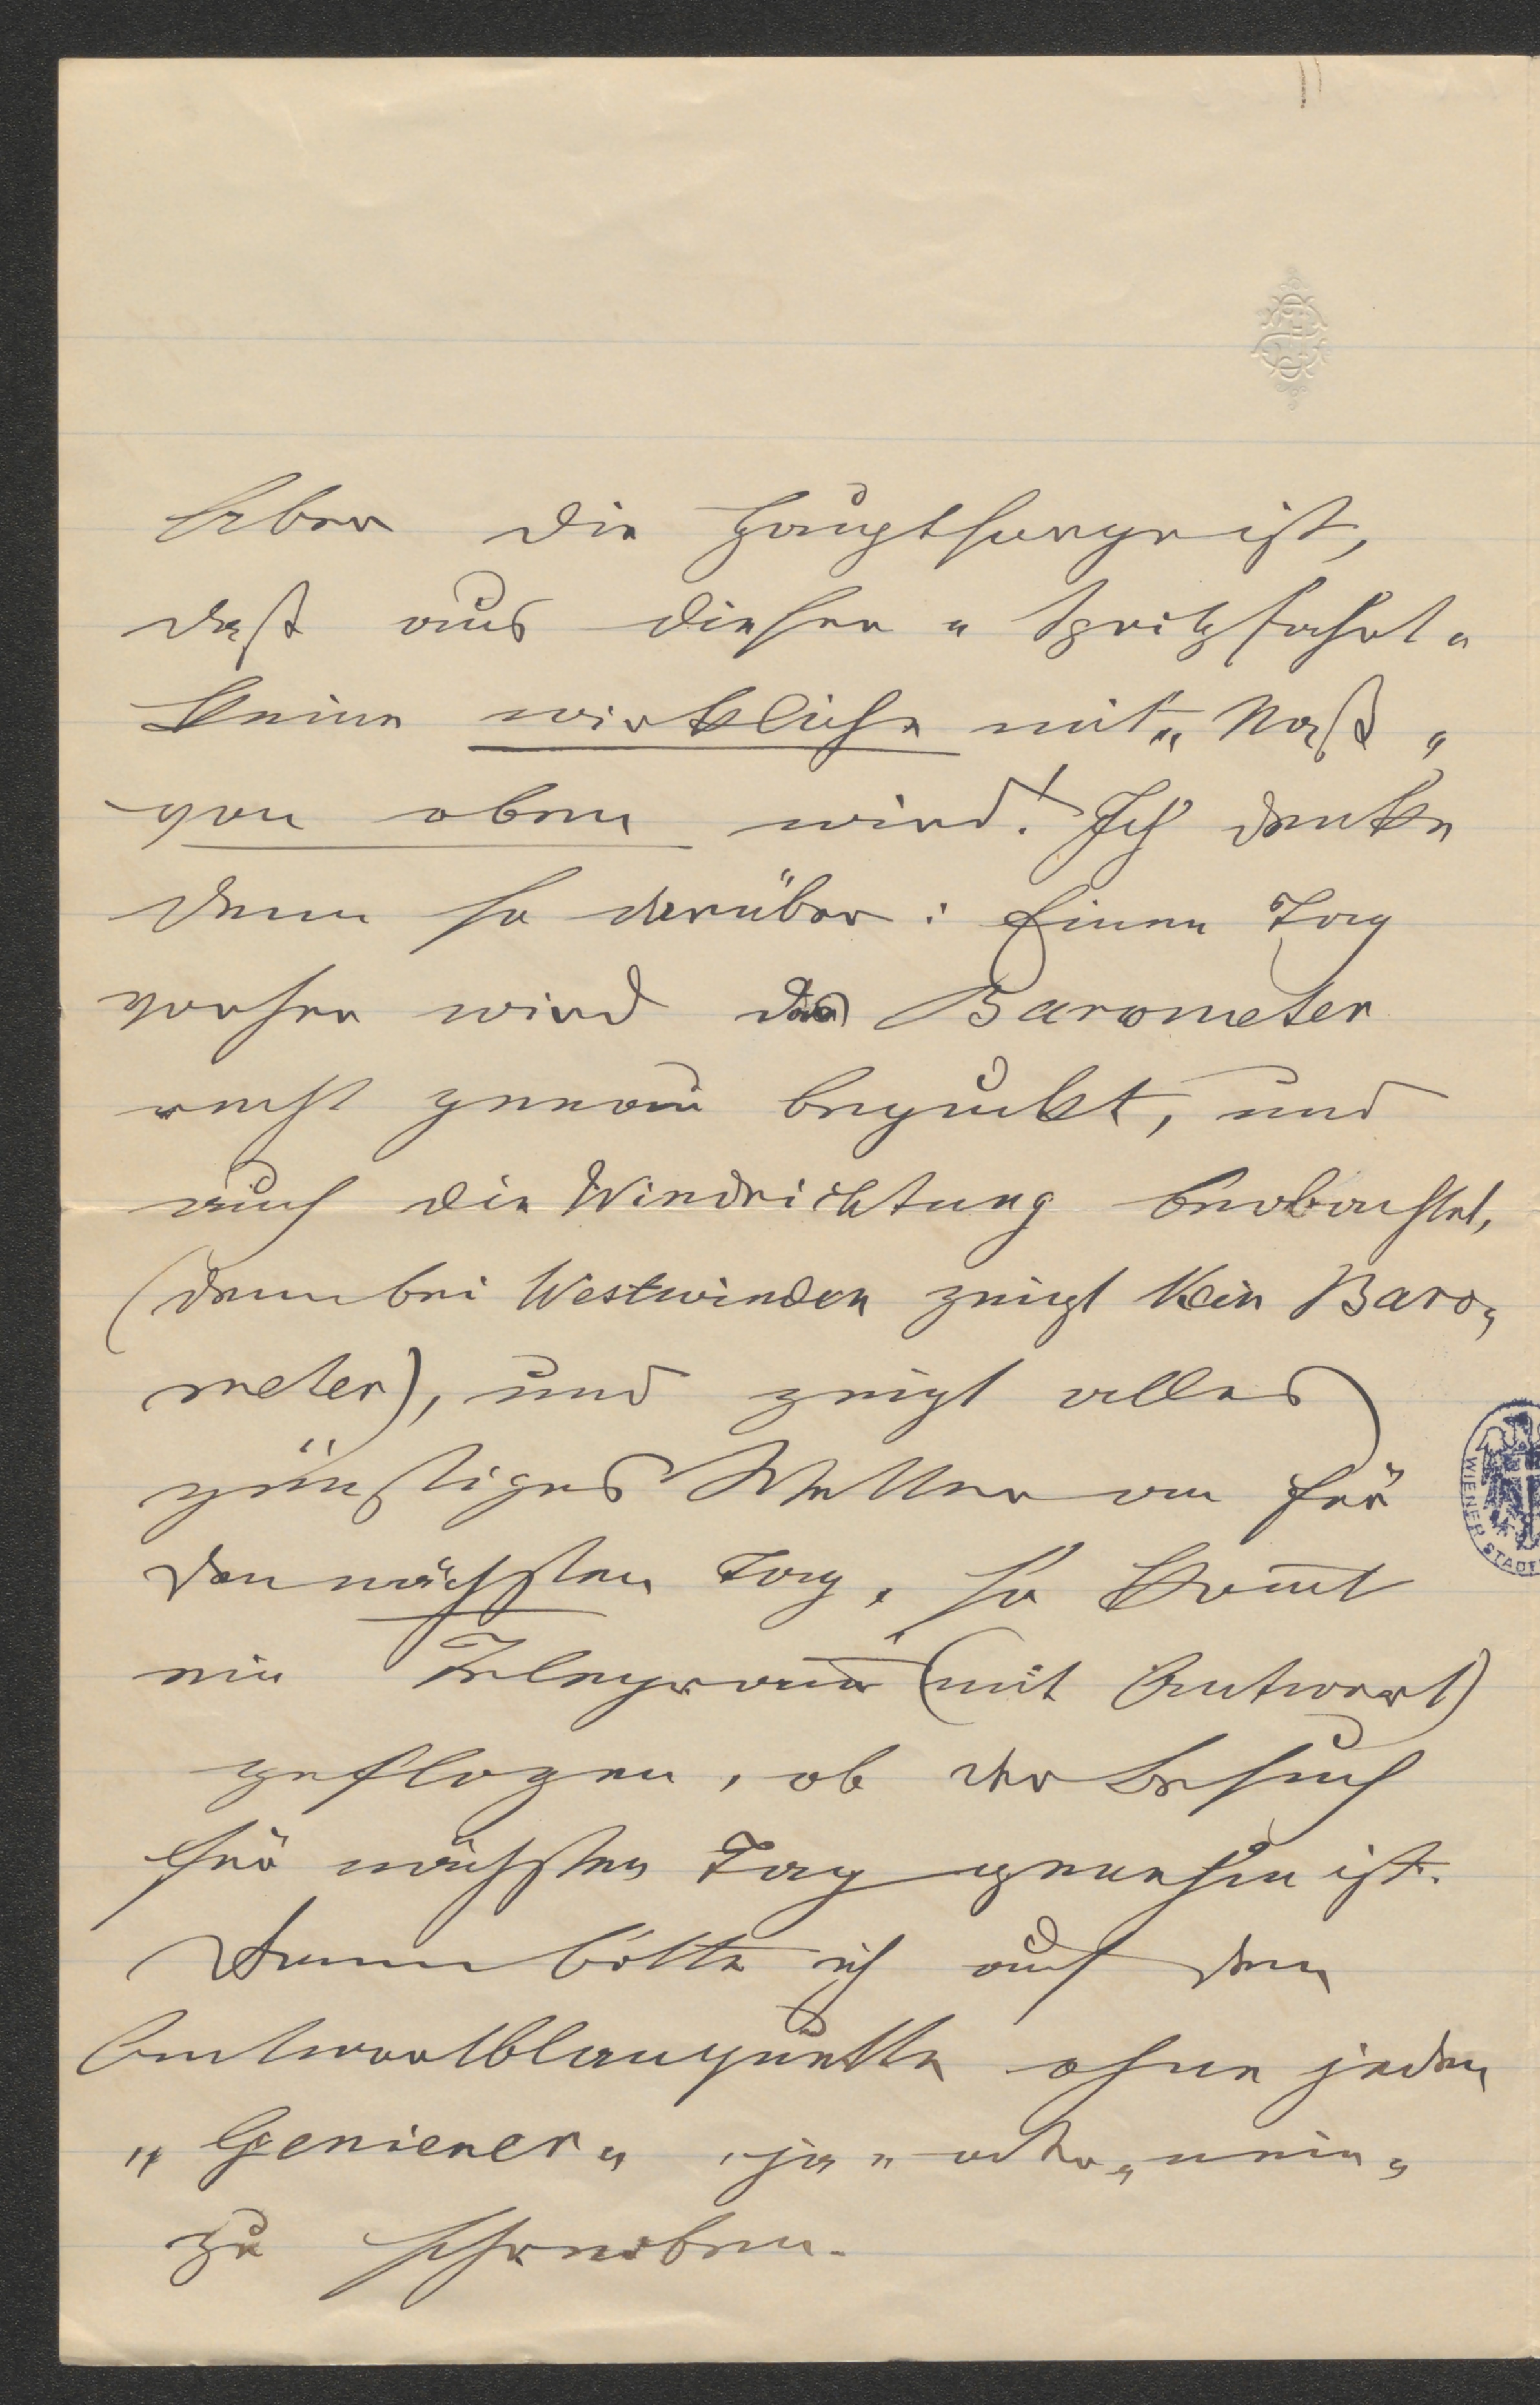 Aber die Hauptsorge ist,
daß aus dieser „Spritzfahrt„
keine wirkliche mit „Naß„
von oben wird! Ich denke
denn so darüber: Einen Tag
vorher wird das Barometer
recht genau beguckt, und
auch die Windrichtung beobachtet,
(denn bei Westwinden zeigt kein Baro„
meter), und zeigt alles
günstiges Wetter an für
den nächsten Tag, so kom̅t
ein Telegram̅ (mit Antwort)
geflogen, ob der Besuch
für nächsten Tag genehm ist.
Dann bitte ich auf dem
Antwortblanquette ohne jeden
„Genierer„ „ja„ oder „nein„
zu schreiben.
WIENER STADT